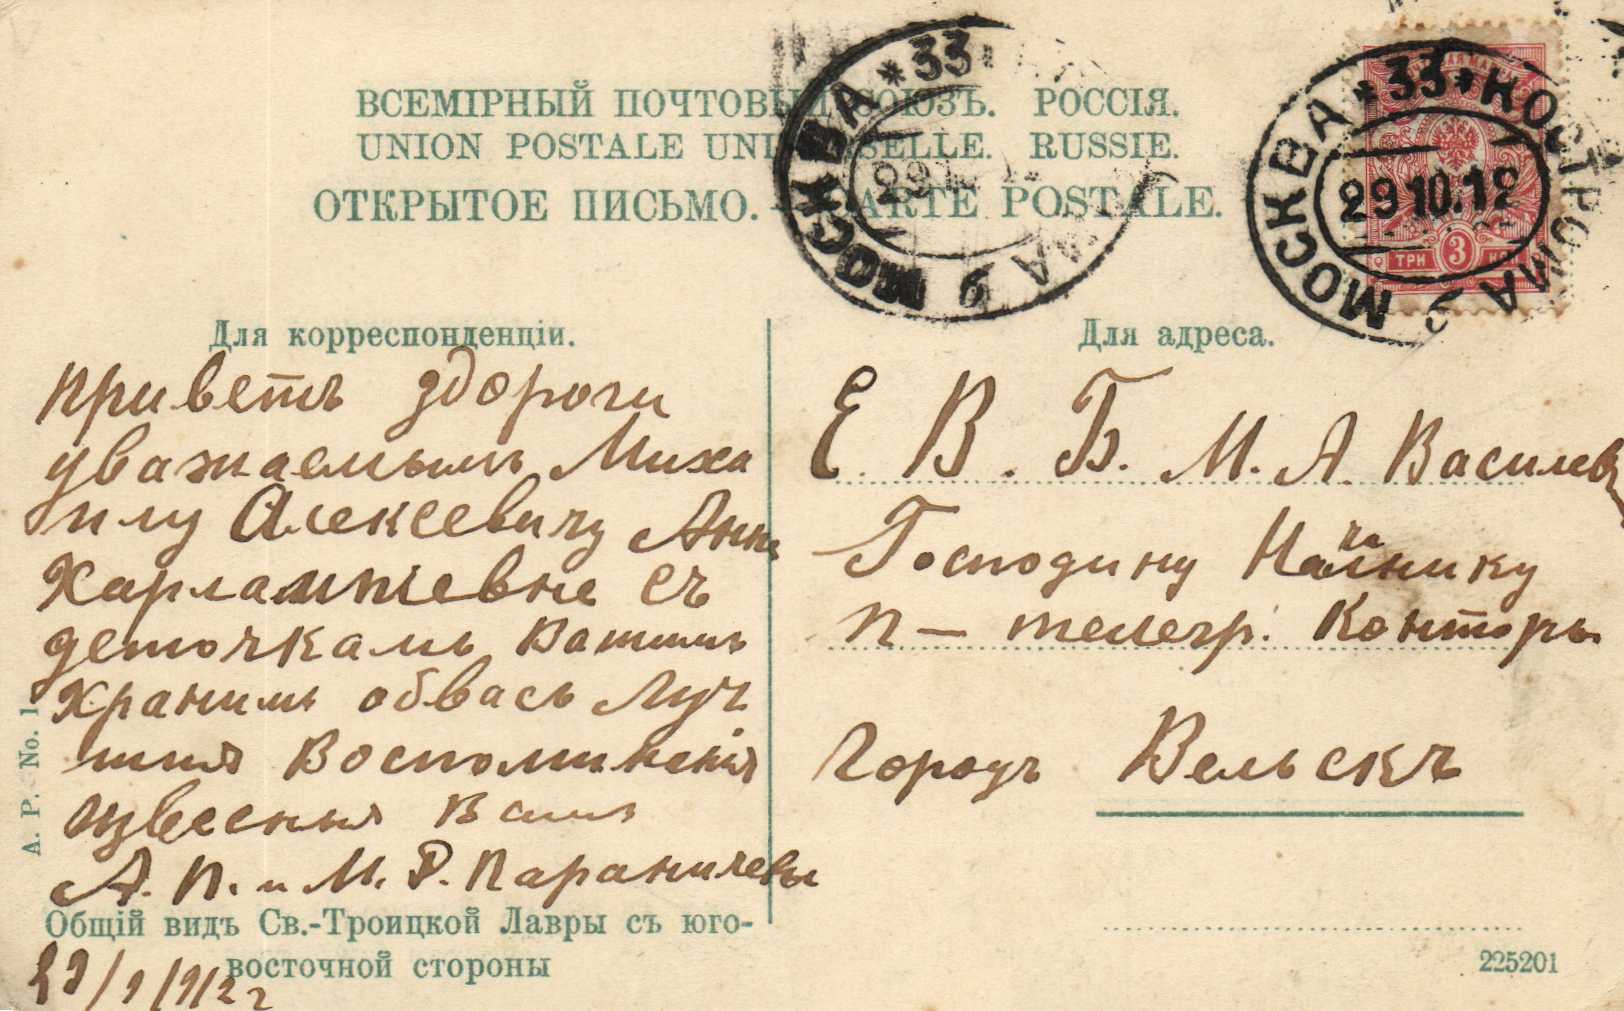 ВСЕМІРНЫЙ ПОЧТОВЫЙ СОЮЗЪ. РОССІЯ.
UNION POSTALE UNIVERSELLE. RUSSIE.
ОТКРЫТОЕ ПИСЬМО. — CARTE POSTALE.
МОСКВА *33* КОСТРОМА 9
29 10.12
МОСКВА *33*
ТРИ 3 КОП
Для корреспонденціи.
приветъ здороги
уважаемымъ Миха
илу Алексеевичу Анне
Харлампіевне съ
деточкамъ Вашимъ
хранимъ обвасъ Луч
шия Воспоминенія
извесныя Вамъ
А. П. и М. Р. Параничевы
Общій видъ Св.-Троицкой Лавры съ юго-
восточной стороны
A. P. No. 1.
Для адреса.
Е. В. Б. М. А. Василев
Господину Начнику
п — телегр. Конторы
Городъ Вельскъ
225201